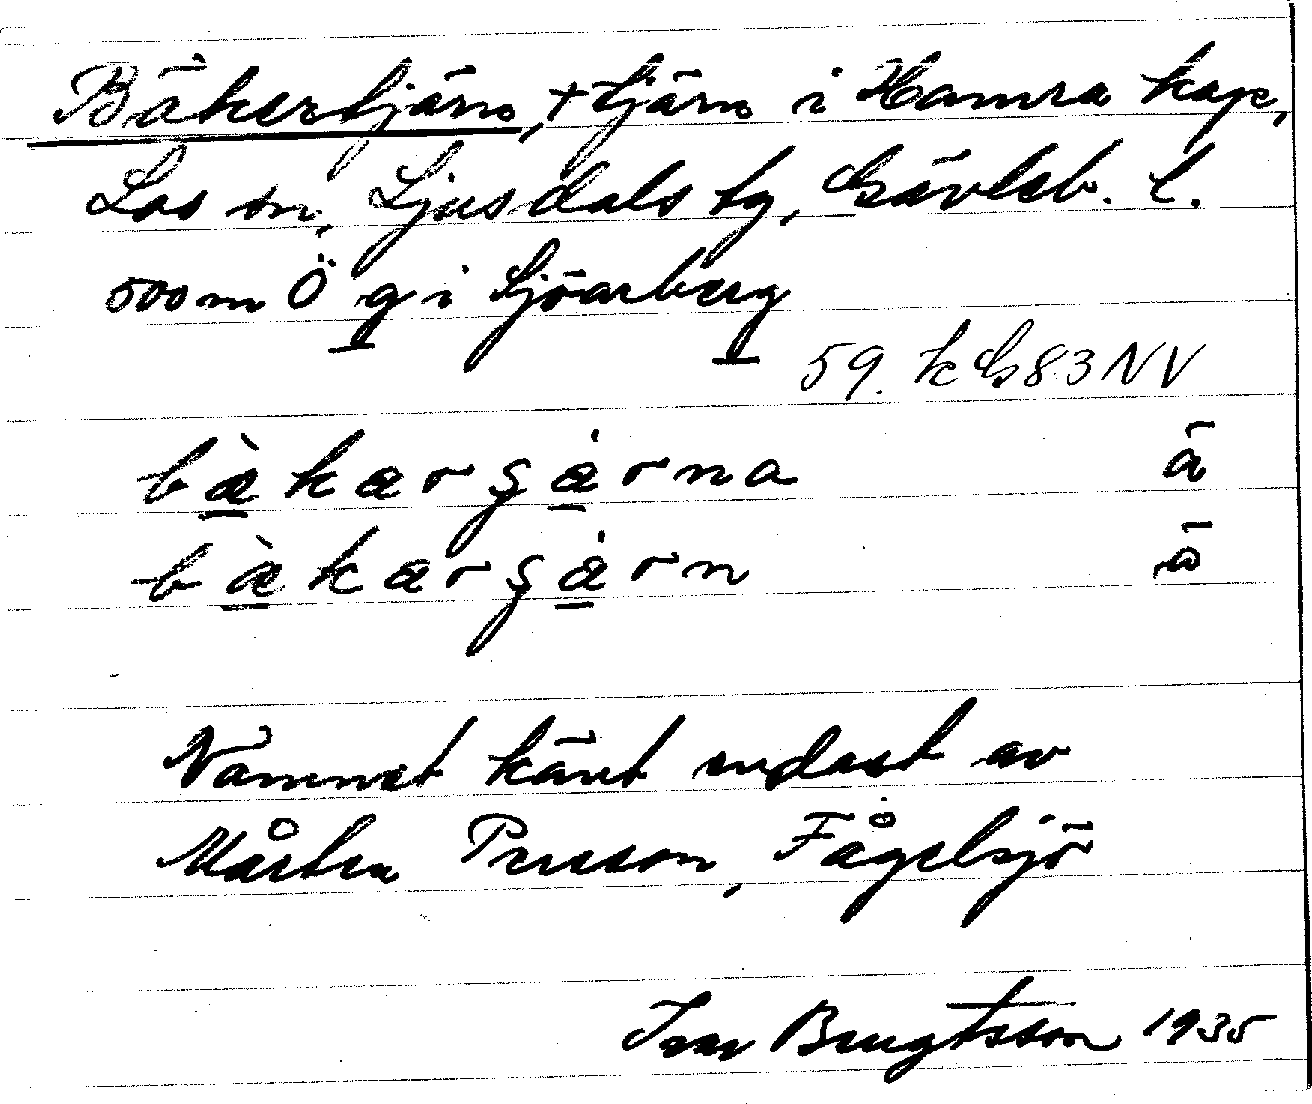 Bäkertjärn, + tjärn i Hamra kap,
Los sn, Ljusdals tg, Gävleb. l.
500 m Ö g i Sjöarberg
59. k G83NV
bæ̀kærşæ̇rna ā
bæ̀kærşæ̇rn ā
Namnet känt endast av
Mårten Persson, Fågelsjö
Ivar Bengtsson 1935